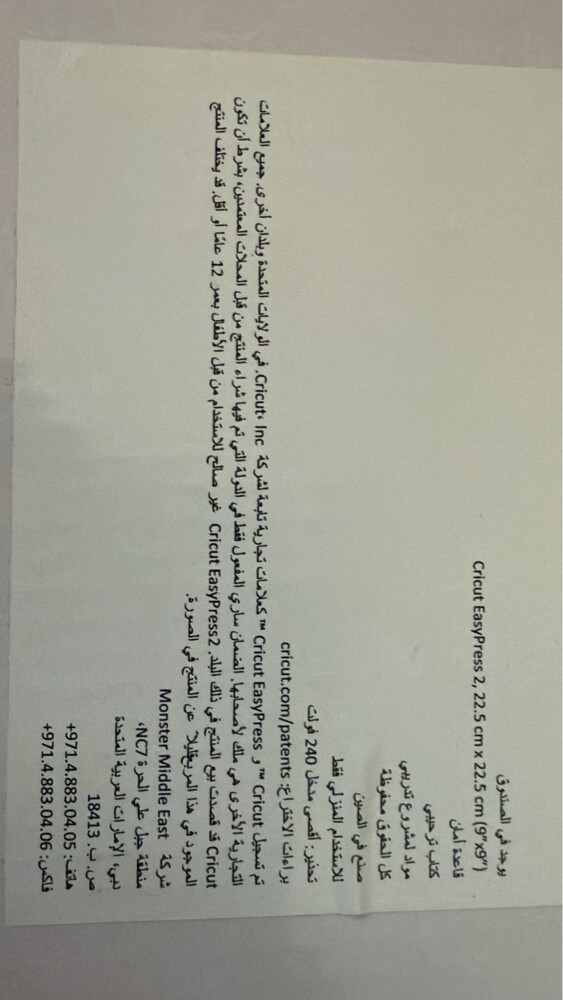 يوجد في الصندوق
Cricut EasyPress 2, 22.5 cm x 22.5 cm (9”x9”)
قاعدة أمان
كتاب ترحيبي
مواد لمشروع تدريبي
كل الحقوق محفوظة
صنع في الصين
للاستخدام المنزلي فقط
تحذير: أقصى مدخل 240 فولت
براءات الاختراع: cricut.com/patents
تم تسجيل Cricut ™ و Cricut EasyPress ™ كعلامات تجارية تابعة لشركة Cricut، Inc. في الولايات المتحدة وبلدان أخرى. جميع العلامات
التجارية الأخرى هي ملك لأصحابها. الضمان ساري المفعول فقط في الدولة التي تم فيها شراء المنتج من قبل المحلات المعتمدين، بشرط أن تكون
Cricut قد قصدت بيع المنتج في ذلك البلد. Cricut EasyPress2 غير صالح للاستخدام من قبل الأطفال بعمر 12 عامًا أو أقل. قد يختلف المنتج
الموجود في هذا المربع قليلا عن المنتج في الصورة.
شركة Monster Middle East
منطقة جبل علي الحرة NC7،
دبي، الإمارات العربية المتحدة
ص. ب. 18413
هاتف: +971.4.883.04.05
فاكس: +971.4.883.04.06